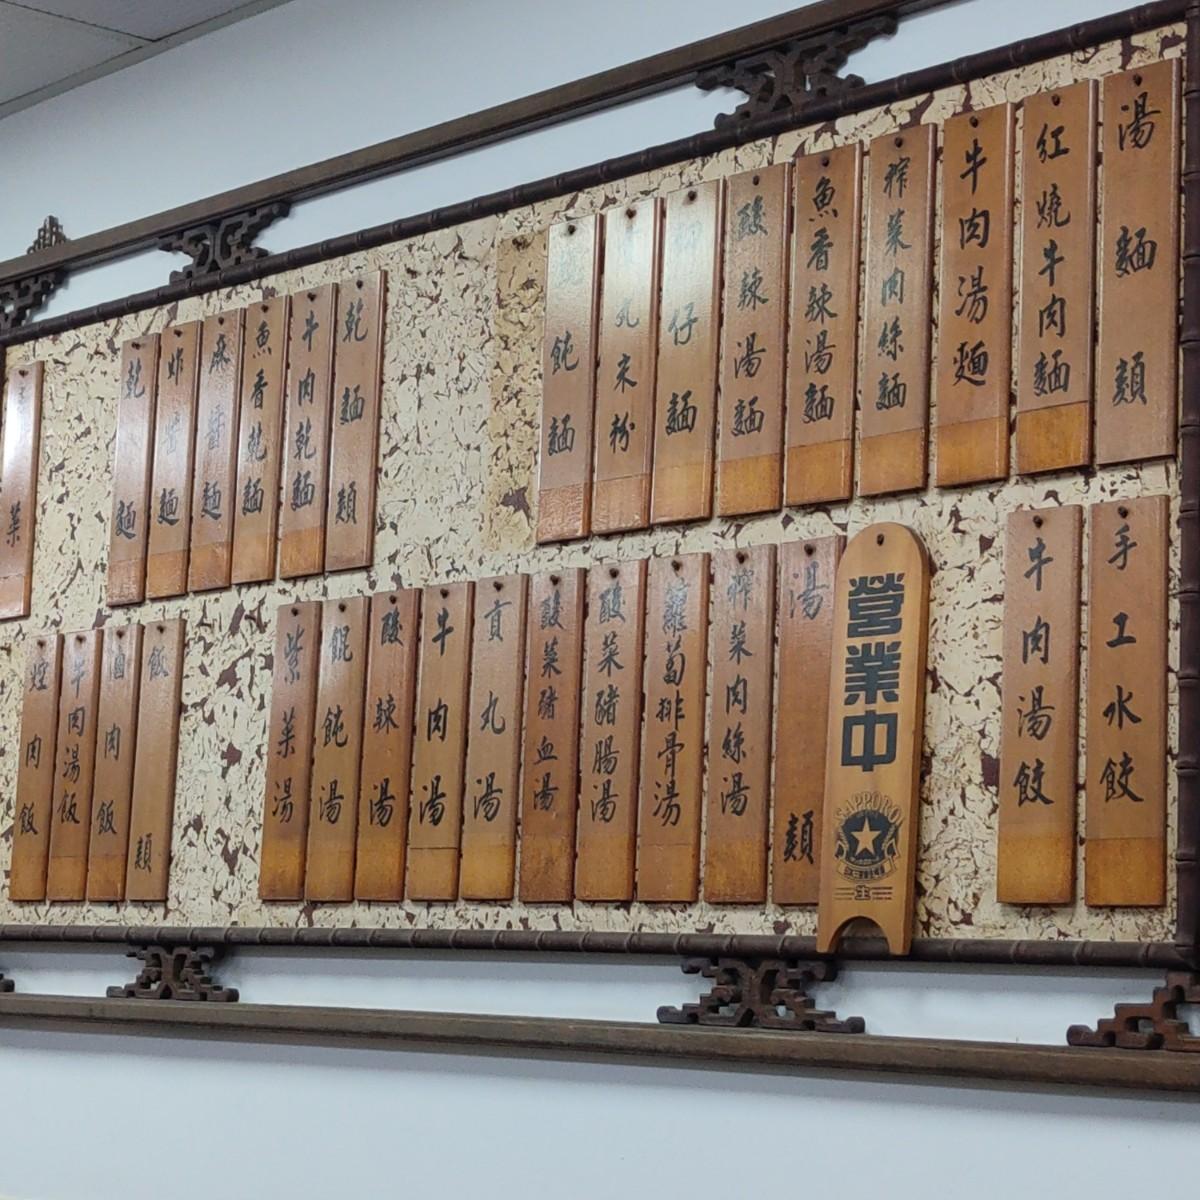 湯麵類
紅燒牛肉麵
牛肉湯麵
榨菜肉絲麵
魚香辣湯麵
酸辣湯麵
仔麵
丸米粉
飩麵
乾麵類
牛肉乾麵
魚香乾麵
麻醬麵
炸醬麵
乾麵
菜
手工水餃
牛肉湯餃
營業中
SAPPORO
生
湯類
榨菜肉絲湯
蘿蔔排骨湯
酸菜豬腸湯
酸菜豬血湯
貢丸湯
牛肉湯
酸辣湯
餛飩湯
紫菜湯
飯類
滷肉飯
牛肉湯飯
焢肉飯